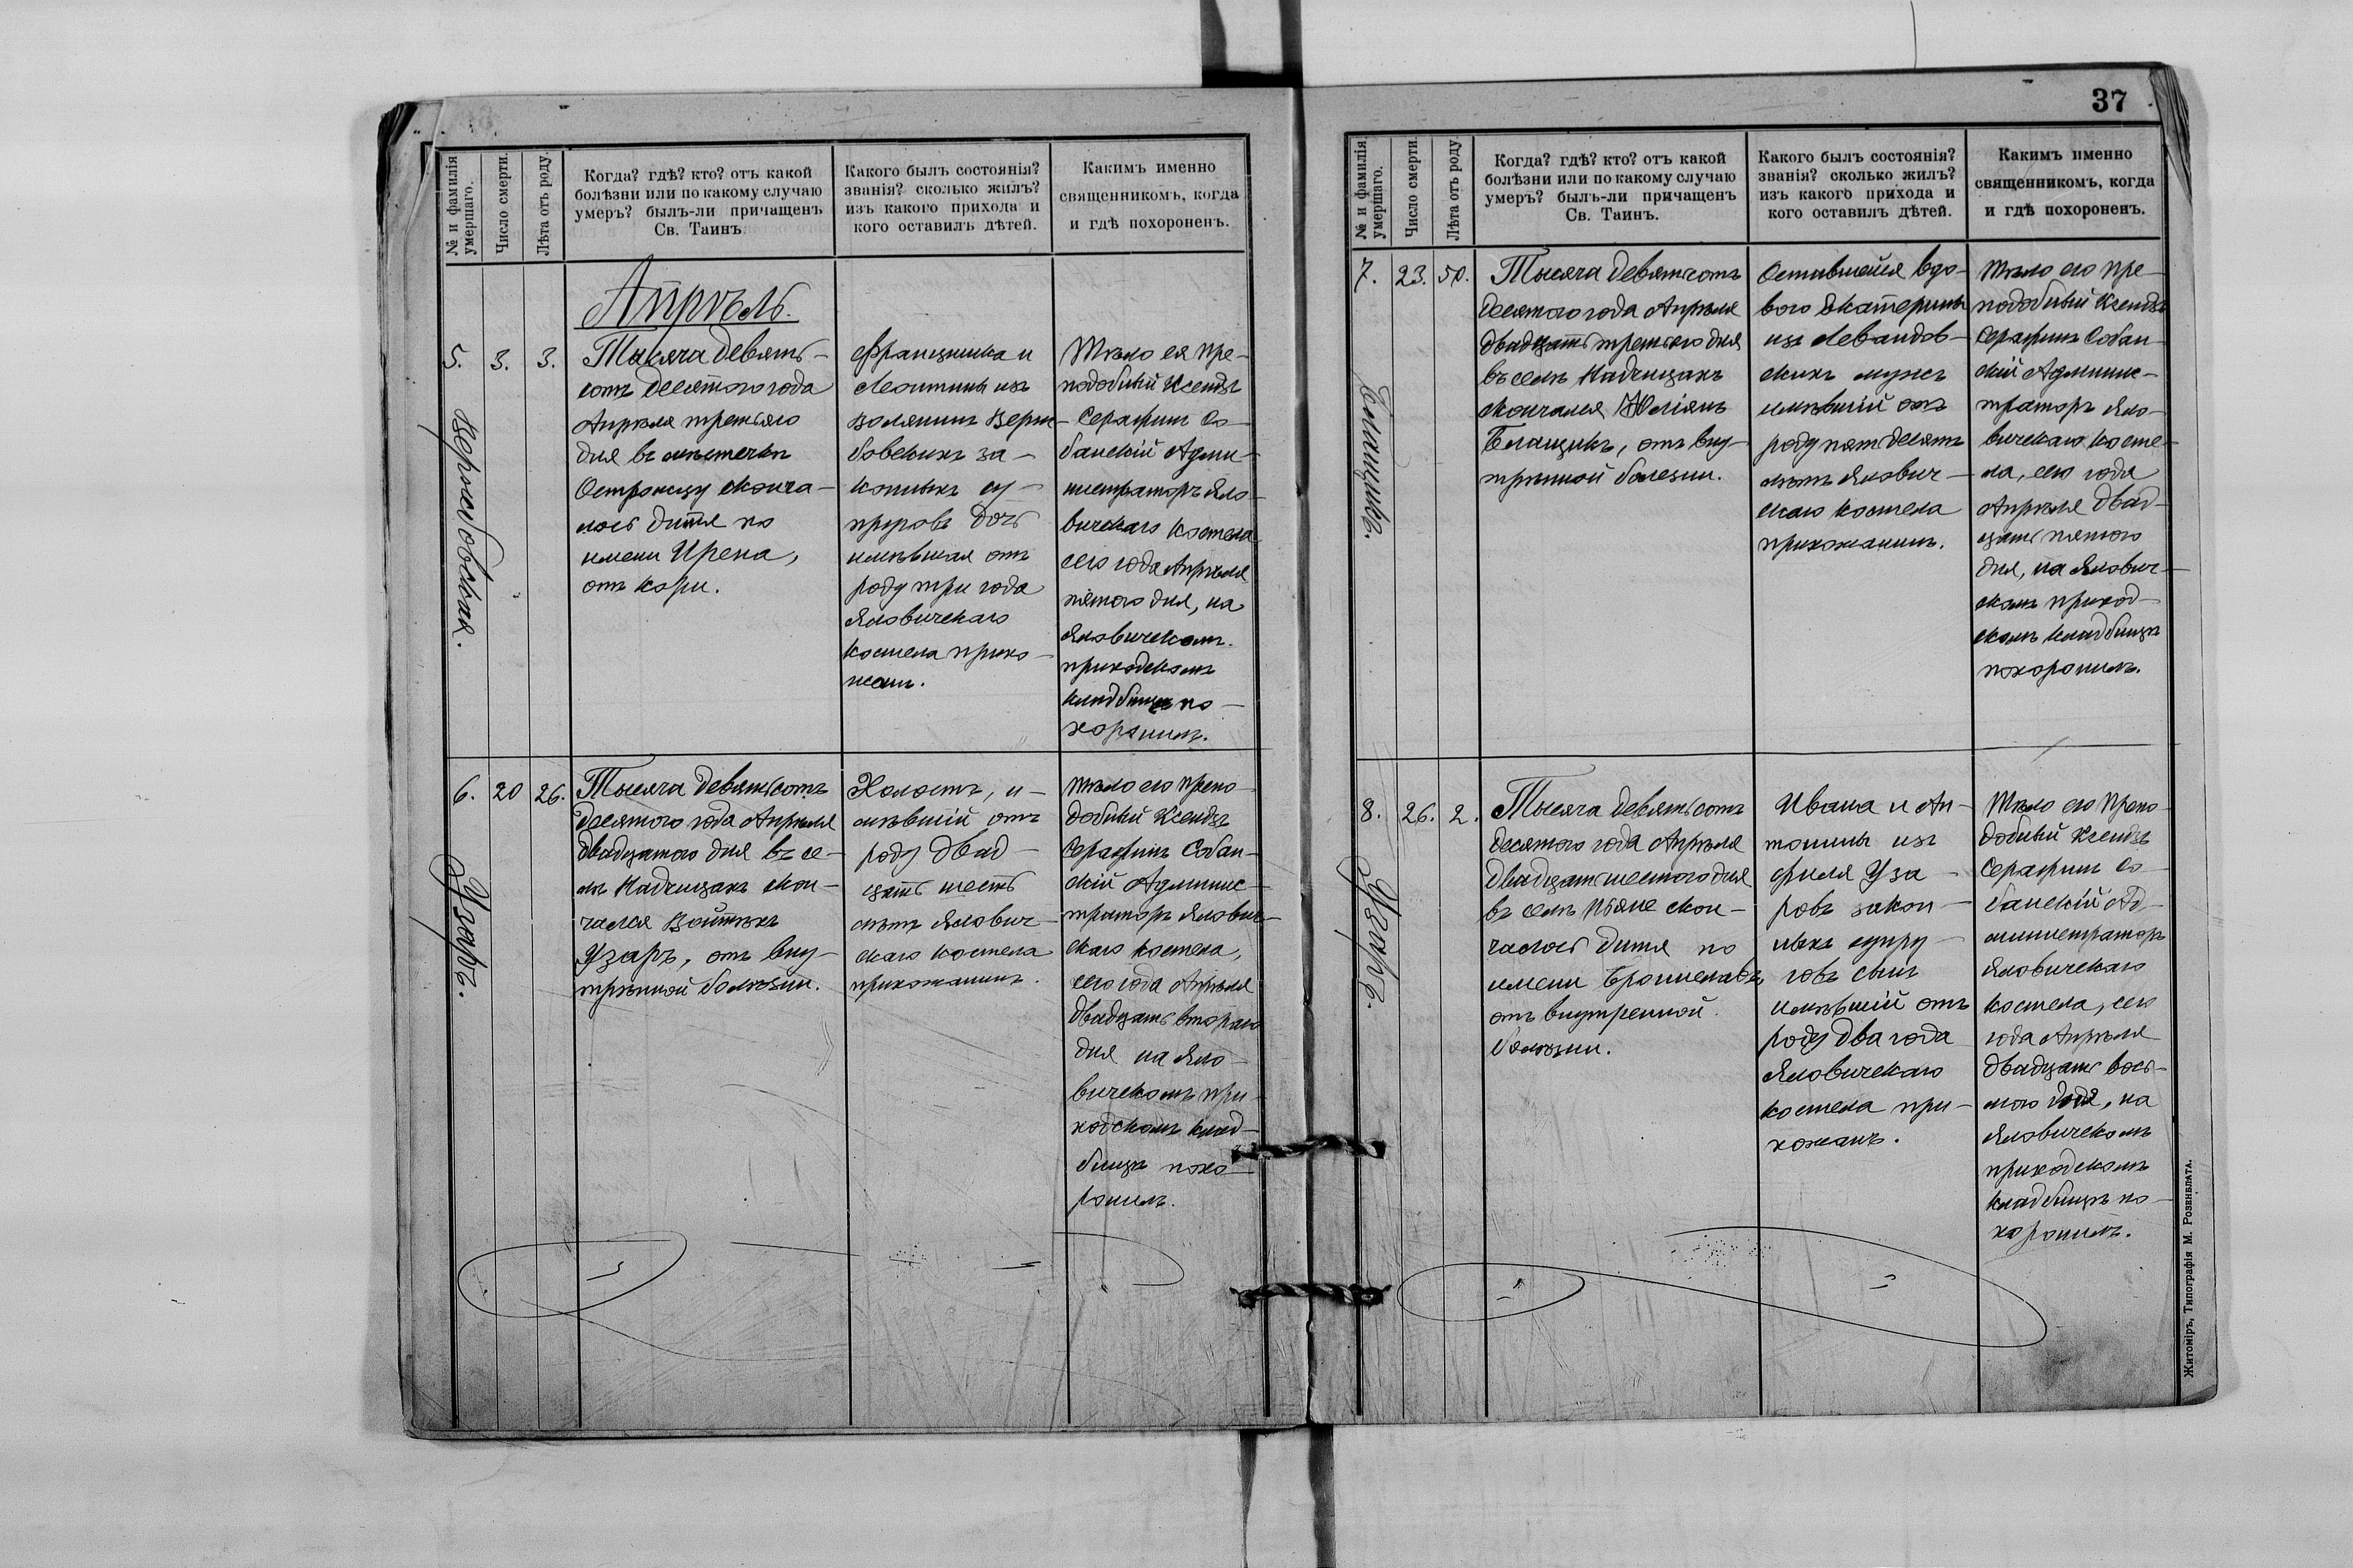 № и фамилія
умершаго.
Число смерти.
Лѣта отъ роду.
Когда? гдѣ? кто? отъ какой
болѣзни или по какому случаю
умеръ? былъ-ли причащенъ
Св. Таинъ
Какого былъ состоянія?
званія? сколько жилъ?
изъ какого прихода и
кого оставилъ дѣтей.
Какимъ именно
священникомъ, когда
и гдѣ похороненъ.
Апрѣль.
5.
3.
3.
Тысяча девять-
сотъ десятого года
Апрѣля третьяго
дня въ мѣстечкѣ
Острожцу сконча-
лось дитя по
имени Ирена,
отъ кори.
Франциика и
Леонтины изъ
Верж-
бовскихъ за-
конныхъ су-
пруговъ дочь
имѣвшая отъ
роду три года
Яловичскаго
костела прихо-
жан.
Тѣло ея пре-
подобный Ксендзъ
Серафим Со-
банскій Адми-
нистраторъ Яло-
вичскаго Костела
сего года Апрѣля
пятого дня, на
Яловичскомъ
приходскомъ
кладбищѣ по-
хоронилъ.
6.
20
26.
Узаръ.
Тысяча девятьсотъ
десятого года Апрѣля
двадцатого дня въ се-
лѣ Надчицахъ скон-
чался Войтѣхъ
Узаръ, отъ вну-
трѣнной болѣзни.
Холостъ, и-
мѣвшій отъ
роду двад-
цать шесть
лѣтъЯлович-
скаго костела
прихожанинъ.
Тѣло его препо-
добный Ксендзъ
Серафимъ Собан-
скій Админис-
траторъЯлович-
скаго костела,
сего года Апрѣля
двадцать втораго
дня на Яло-
вичскомъ при-
ходскомъ клад-
бищѣ похо-
ронилъ.
37
№ и фамилія
умершаго.
Число смерти.
Лѣта отъ роду
Когда? гдѣ? кто? отъ какой
болѣзни или по какому случаю
умеръ? былъ-ли причащенъ
Св. Таинъ.
Какого былъ состоянія?
званія? сколько жилъ?
изъ какого прихода и
кого оставилъ дѣтей.
Какимъ именно
священникомъ, когда
и гдѣ похороненъ.
7.
23.
50.
Блащикъ.
Тысяча девятьсотъ
десятого года Апрѣля
двадцать третьего дня
въ селѣ Надчицахъ
скончался Юліянъ
Блащикъ, отъ вну-
трѣнной болезни.
Оставшейся вдо-
вого Екатерины
изъ Левандов-
скихъ мужъ
имѣвшій отъ
роду пятьдесятъ
лѣтъЯлович-
скаго костела
прихожанинъ.
Тѣло его пре-
подобный Ксендзъ
Серафимъ Собан-
скій Админис-
траторъ Яло-
вичскаго косте-
ла, сего года
Апрѣля двад-
цать пятого
дня, наЯлович-
скомъ приход-
скомъ кладбищѣ
похоронилъ.
8.
26.
2.
Узаръ.
Тысяча девятьсотъ
десятого года Апрѣля
двадцать шестого дня
въ селѣ Пьяне скон-
чалось дитя по
имени Брониславъ,
отъ внутренной
болѣзни.
Ивана и Ан-
тонины изъ
Узa-
ровъ закон-
ныхъ супру-
говъ сынъ
имѣвшій отъ
роду два года
Яловичскаго
костела при-
хожанъ.
Тѣло его препо-
добный Ксендзъ
Серафим Со-
банскій Ад-
министраторъ
Яловичскаго
костела, сего
года Апрѣля
двадцать вось-
мого дня, на
Яловичскомъ
приходскомъ
кладбищѣ по-
хоронилъ.
Житоміръ, Типографія М. Розенблата.